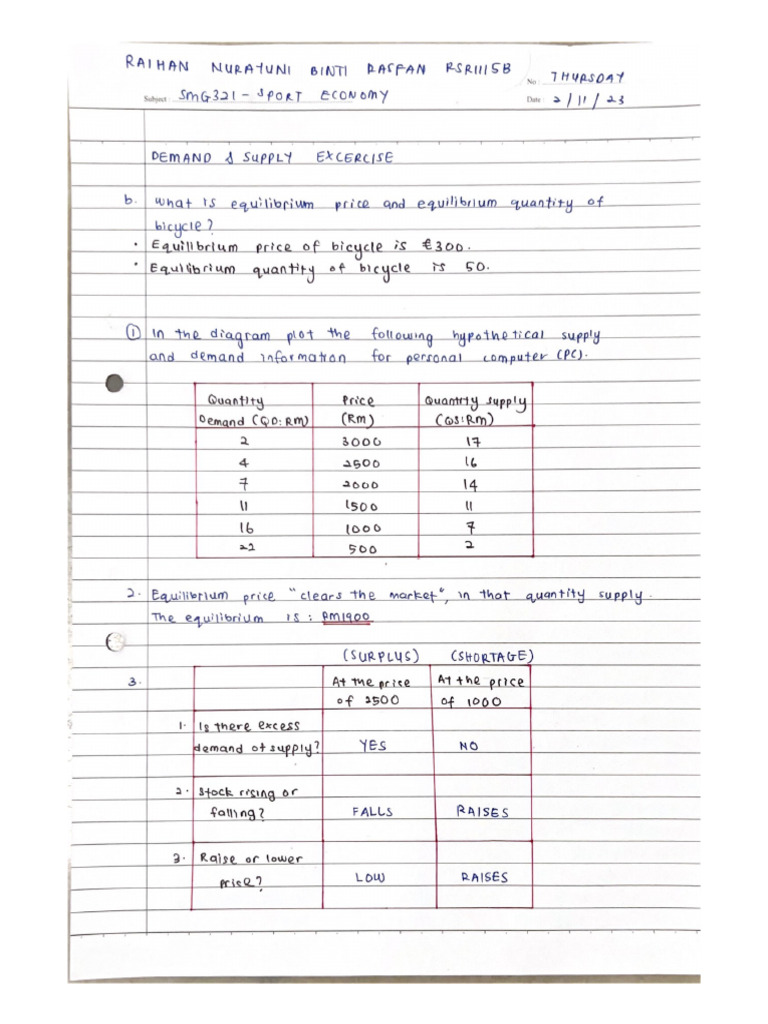 RAIHAN NURATUNI BINTI RASFAN RSR1115B
No : THURSDAY
Subject : SMG321 - SPORT ECONOMY
Date : 2/11/23
DEMAND & SUPPLY EXCERCISE
b. What is equilibrium price and equilibrium quantity of
bicycle?
• Equilibrium price of bicycle is €300.
• Equilibrium quantity of bicycle is 50.
① In the diagram plot the following hypothetical supply
and demand information for personal computer (PC).
Quantity Price Quantity supply
Demand (QD:RM) (RM) (QS:RM)
2 3000 17
4 2500 16
7 2000 14
11 1500 11
16 1000 7
22 500 2
2. Equilibrium price "clears the market", in that quantity supply.
The equilibrium is : RM1900
(SURPLUS) (SHORTAGE)
3. At the price At the price
of 2500 of 1000
1. Is there excess
demand of supply? YES NO
2. Stock rising or
falling? FALLS RAISES
3. Raise or lower
price? LOW RAISES